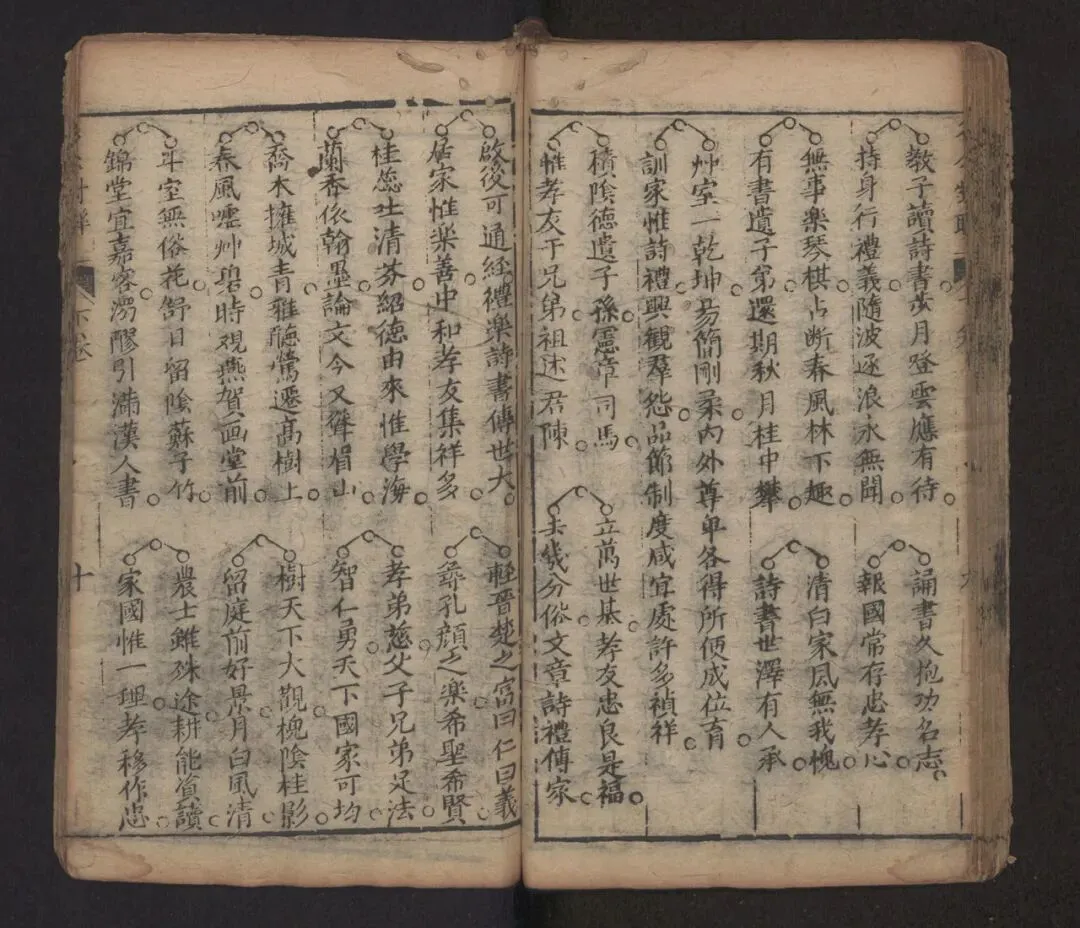 教子讀詩書步月登雲應有待
持身行禮義隨波逐浪永無聞
誦書久抱功名志
報國常存忠孝心
無事楽琴棋占断春風林下趣
有書遺子弟還期秋月桂中攀
清白家風無我愧
詩書世澤有人承
艸室一乾坤易簡剛柔内外尊卑各得所便成位育
訓家惟詩禮興觀羣怨品節制度咸宜處許多禎祥
積陰德遺子孫憲章司馬
惟孝友于兄弟祖述君陳
立萬世基孝友忠良是福
去幾分俗文章詩禮傳家
啟後可通経禮楽詩書傳世大
居家惟楽善中和孝友集祥多
輕晉楚之富曰仁曰義
尋孔顔之楽希聖希賢
桂蕊吐清芬紹德由來惟學海
蘭香依翰墨論文今又聳眉山
孝弟慈父子兄弟足法
智仁勇天下國家可均
喬木擁城青雅聽鶯遷高樹上
春風嘘艸碧時观燕賀画堂前
樹天下大觀槐陰桂影
留庭前好景月白風清
斗室無俗花舒日留陰蘇子竹
錦堂宜嘉客醪引滿漢人書
農士雖殊途耕能省讀
家國惟一理孝移作忠
下卷
十